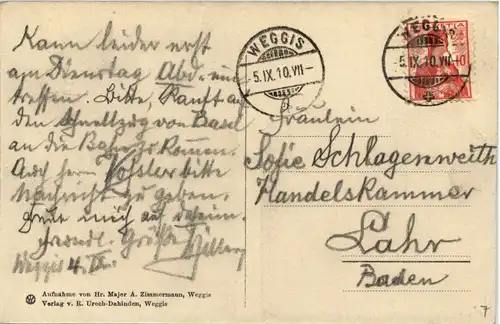 Kann leider erst
am Dienstag Abd. ein
treffen. Bitte, Ranft an
den Schnellzug von Basel
an die Bahn zu kommen.
Auch Herrn Vohsler bitte
Nachricht zu geben.
Freue mich auf daheim.
Freundl. Grüße
Weggis 4. IX.
WEGGIS
-5.IX.10.VII-
WEGGIS
-5.IX.10.VII-
Fräulein
Sofie Schlagenweith
Handelskammer
Lahr
Baden
Aufnahme von Hr. Major A. Zimmermann, Weggis
Verlag v. R. Urech-Dahinden, Weggis
7